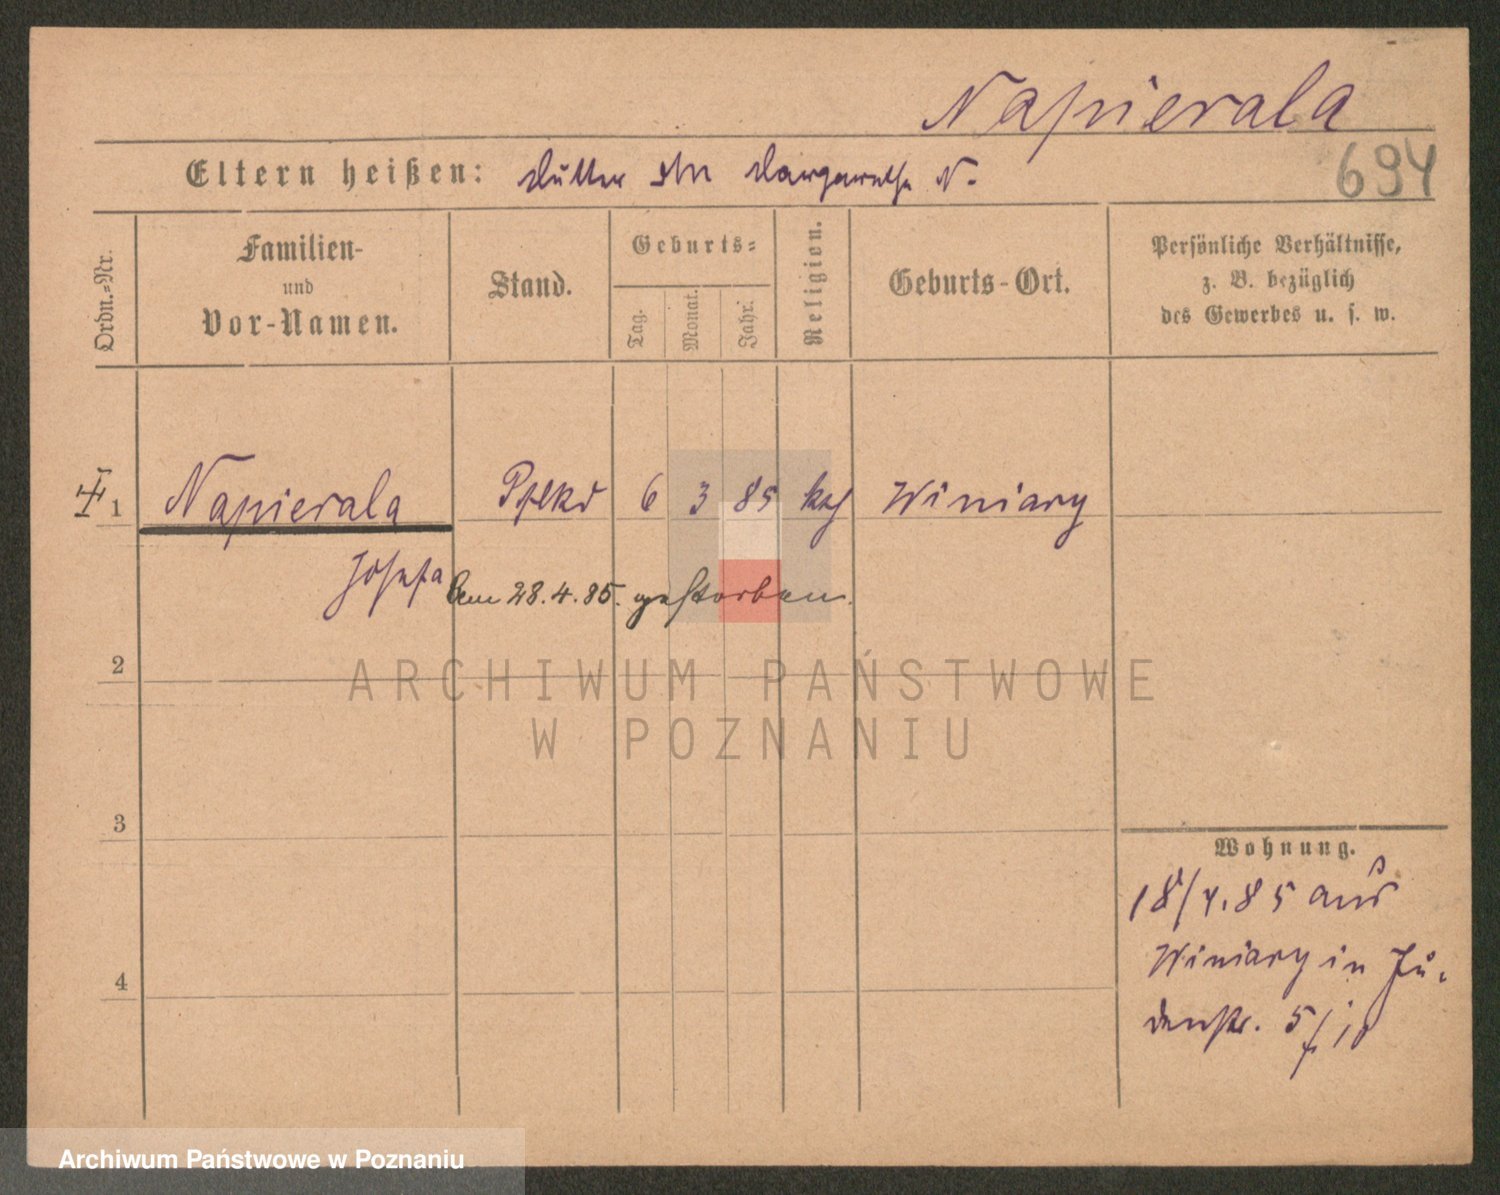 Napierala
694
Eltern heißen: Mutter Margarethe N.
Ordn.=Nr.
Familien-
und
Vor-Namen.
Stand.
Geburts=
Tag.
Monat.
Jahr.
Religion.
Geburts-Ort.
Persönliche Verhältnisse,
z. B. bezüglich
des Gewerbes u. s. w.
1 Napierala Pflkd 6 3 85 kth Winiary
Josefa
Am 28.4.85. gestorben.
2
3
4
Wohnung.
18/4.85 aus
Winiary in Ju-
denstr. 5
ARCHIWUM PAŃSTWOWE
W POZNANIU
Archiwum Państwowe w Poznaniu